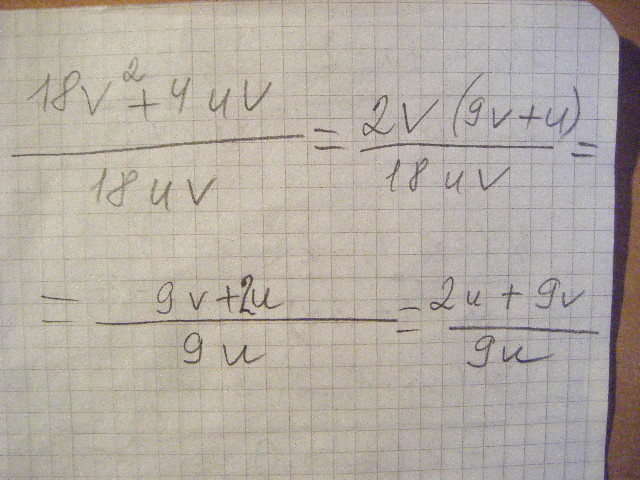 (18v²+4uv)/(18uv) = (2v(9v+u))/(18uv) =
= (9v+2u)/(9u) = (2u+9v)/(9u)